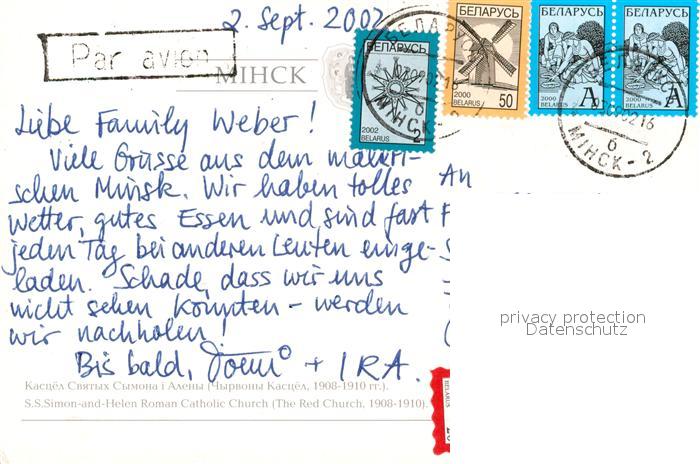 2. Sept. 2002
Par avion
МІНСК
БЕЛАРУСЬ
2002
BELARUS
2
БЕЛАРУСЬ
2000
BELARUS
50
БЕЛАРУСЬ
2000
BELARUS
A
БЕЛАРУСЬ
2000
BELARUS
A
МІНСК - 2
б
МІНСК - 2
Liebe Family Weber!
Viele Grüsse aus dem maleri-
schen Minsk. Wir haben tolles
Wetter, gutes Essen und sind fast
jeden Tag bei anderen Leuten einge-
laden. Schade, dass wir uns
nicht sehen konnten - werden
wir nachholen!
Bis bald, + IRA.
An
Касцёл Святых Сымона і Алены (Чырвоны Касцёл, 1908-1910 гг.).
S.S.Simon-and-Helen Roman Catholic Church (The Red Church, 1908-1910).
BELARUS
privacy protection
Datenschutz